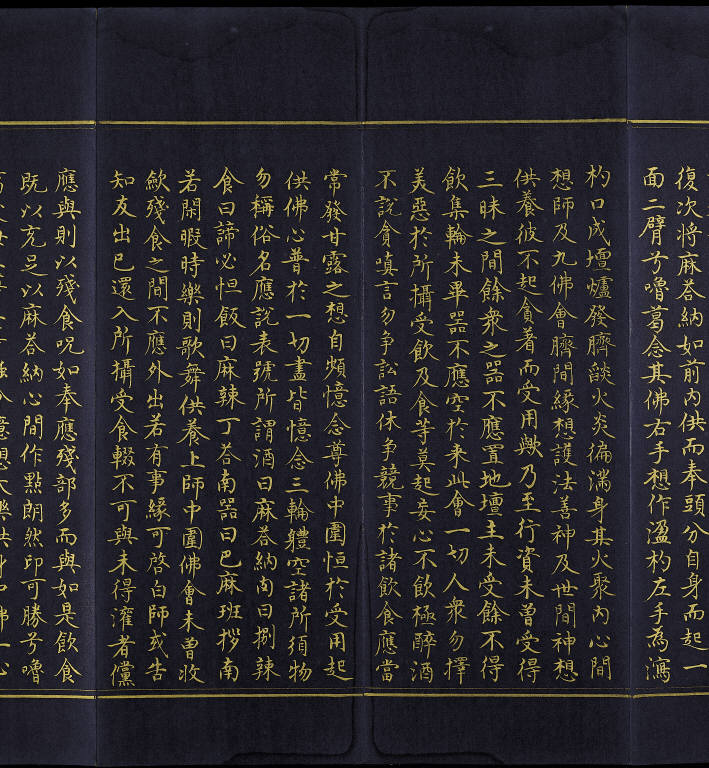 復次將麻荅納如前內供而奉頭分自身而起一
面二臂兮嚕葛念其佛右手想作溋杓左手為瀉
杓口成壇爐發臍燄火炎徧滿身其火聚內心間
想師及九佛會臍間緣想護法善神及世間神想
供養彼不起貪著而受用歟乃至行資未曾受得
三昧之間餘衆之器不應置地壇主未受餘不得
飲集輪未畢器不應空於來此會一切人衆勿擇
美惡於所攝受飲及食等莫起妄心不飲極醉酒
不說貪嗔言勿爭訟語休爭競事於諸飲食應當
常發甘露之想自頻憶念尊佛中圍恒於受用起
供佛心普於一切盡皆憶念三輪軆空諸所須物
勿稱俗名應說表號所謂酒曰麻荅納肉曰捌辣
食曰諦必怛飯曰麻辣丁荅南器曰巴麻班拶南
若閑暇時樂則歌舞供養上師中圍佛會未曾收
歛殘食之間不應外出若有事緣可啓白師或告
知友出已還入所攝受食輟不可與未得灌者儻
應與則以殘食呪如奉應殘部多而與如是飲食
既以充足以麻荅納心間作點朗然印可勝兮嚕